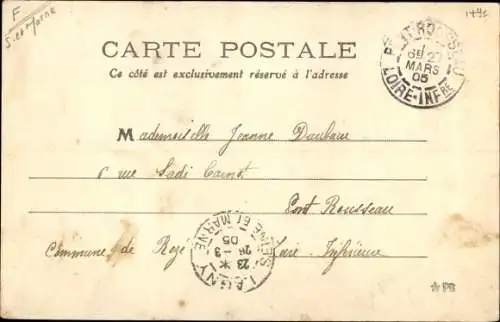 F
S. et Marne
CARTE POSTALE
Ce côté est exclusivement réservé à l'adresse
PONT ROUSSEAU
MARS
05
LOIRE-INFRE
Mademoiselle Jeanne
6 rue Sadi Carnot
Pont Rousseau
Commune de Rezé Loire Inférieure
LAGNY
23 * 26 -3
05
SEINE ET MARNE